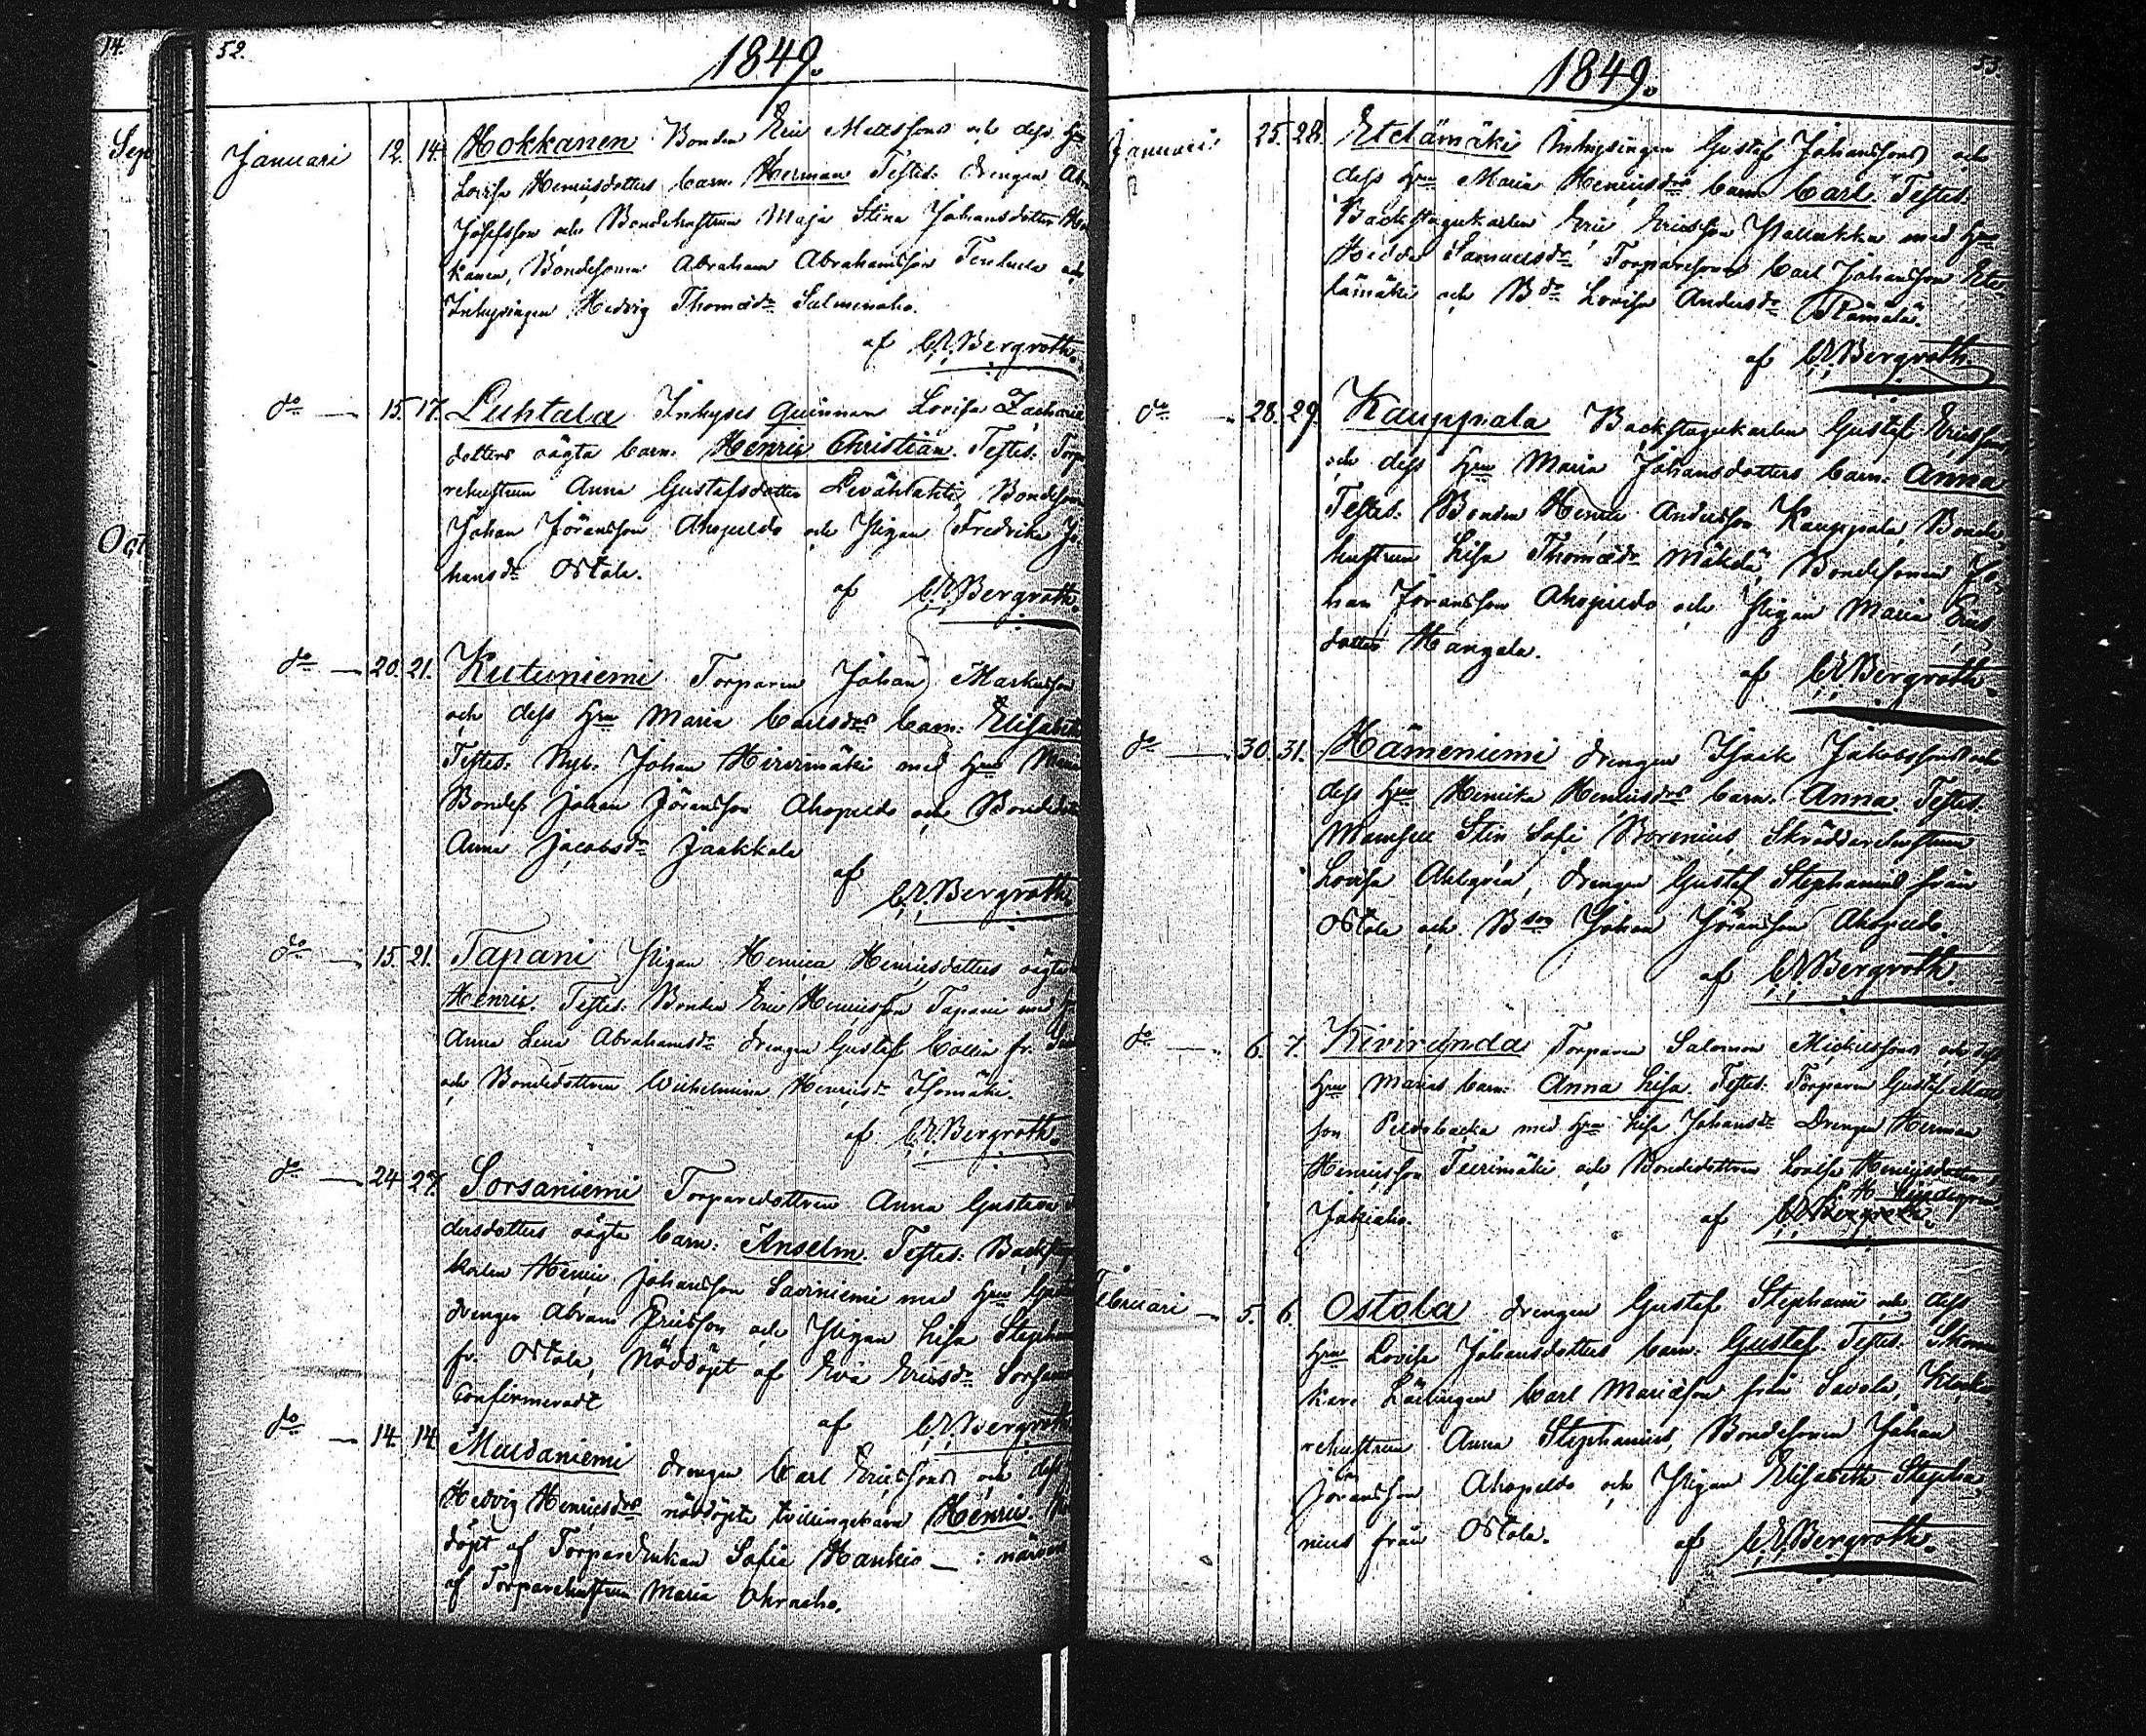 14.
Sep
Oct
52.
1849.
Januari 12. 14. Hokkanen Bonden Eric Mattssons och dess Hru
Lovisa Henricsdotters barn. Herman Testes. Drengen
Josefsson och Bondehustrun Maja Stina Johansdotter
kanen, Bondesonen Abraham Abrahamsson och
Inhysingen Hedvig Thomædr Salmenaho.
af C.E. Bergroth.
do — 15. 17. Luhtala Inhyses quinnan Lovisa Zacharia
dotters oägta barn. Henric Christian. Testes. Torpa
rehustrun Anna Gustafsdotter Bondesonen
Johan Jöransson Ahopelto och Pigan Fredrika Jo
hansdr Ostola.
af C.E. Bergroth.
do — 20. 21. Kutuniemi Torparen Johan Markusson
och dess Hru Maria Carlsdrs barn: Elisabeth
Testes. Nyb. Johan Hirvimäki med Hru Maria
Bondes. Johan Jöransson Ahopelto och Bonded
Anna Jacobsdr Jaakkola
af
C.E. Bergroth.
do — 15. 21. Tapani Pigan Henrica Henricsdotters oägta
Henric. Testes. Bonden Eric Henricsson Tapani med
Anna Lena Abrahamsdr Drengen Gustaf Collin fr.
och Bondedottren Wilhelmina Henricsdr Isomäki.
af C.E. Bergroth.
do — 24 27. Sorsaniemi Torparedottren Anna Gustava
dersdotters oägta barn: Anselm. Testes: Backstugu
karlen Henric Johansson Saviniemi med Hru
Drengen Abram Ericsson och Pigan Lisa Stepha
fr. Ostola, Nöddöpt af Eva Ericsdr Sorsani
Confirmeradt
af C.E. Bergroth
do — 14. 14. Muldaniemi Drengen Carl Ericssons och dess
Hedvig Henricsdrs nöddöpta tvillingebarn Henric.
döpt af Torpareenkan Sofia Hankio — : närva
af Torparehustrun Maria Ohraaho.
53.
1849.
Januari 25. 28. Etelämäki Inhysingen Gustaf Johanssons och
dess Hru Maria Henricsdrs barn Carl. Testes.
Backstugukarlen Eric Ericsson med Hru
Hedda Samuelsdr Torparesonen Carl Johansson Ete-
lämäki och Bdr Lovisa Andersdr Rämälä.
af C.E. Bergroth
do — 28. 29. Kauppala Backstugukarlen Gustaf Ericssons
och dess Hru Maria Johansdotters barn: Anna
Testes. Bonden Henric Andersson Kauppala, Bonde-
hustrun Lisa Thomædr Mäkelä, Bondesonen Jo-
han Jöransson Ahopelto och Pigan Maria Erics
dotter Hangala.
af C.E. Bergroth.
do — 30. 31. Hämeniemi Drengen Isaak Jakobssons och
dess Hru Henrika Henricsdrs barn. Anna Testes.
Mamsell Stin Sofi Borenius, Skräddarehustrun
Lovisa Ahlgrén, Drengen Gustaf Stephanus från
Ostola och Bson Johan Jöransson Ahopelto.
af C.E. Bergroth.
do — 6. 7. Kiviranda Torparen Salomon Mickelssons och dess
Hru Marias barn: Anna Lisa. Testes. Torparen Gustaf Matts
son Peldobacka med Hru Lisa Johansdr Drengen Herman
Henricsson Teerimäki och Bondedottren Lovisa Henricsdotter
Jakiaho. af C.E. Bergroth.
Februari — 5. 6. Ostola Drengen Gustaf Stephani och dess
Hru Lovisa Johansdotters barn: Gustaf. Testes: Skoma
kare Lärlingen Carl Mariæson från Savola, Klocka
rehustrun Anna Stephanius, Bondesonen Johan
Jöransson Ahopelto och Pigan Elisabeth Stepha-
nius från Ostola. af C.E. Bergroth.